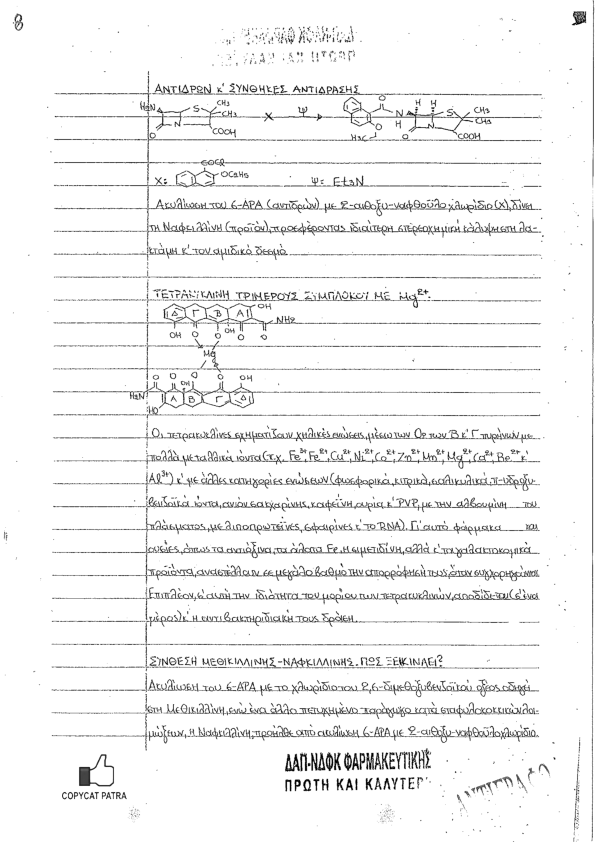 8
ΑΝΤΙΔΡΩΝ κ' ΣΥΝΘΗΚΕΣ ΑΝΤΙΔΡΑΣΗΣ
H2N S CH3 CH3 N O COOH
X Ψ
O N H H H S CH3 CH3 N O COOH H3C O
X: COCl OC2H5
Ψ= Et3N
Ακυλίωση του 6-APA (αντιδρών) με 2-αιθοξυ-ναφθοϋλο χλωρίδιο (X), δίνει
τη Ναφκιλλίνη (προϊόν), προσφέροντας ιδιαίτερη στερεοχημική κάλυψη στη λα-
κτάμη κ' τον αμιδικό δεσμό.
ΤΕΤΡΑΚΥΚΛΙΝΗ ΤΡΙΜΕΡΟΥΣ ΣΥΜΠΛΟΚΟΥ ΜΕ Mg2+:
Δ Γ Β Α OH NH2
OH O O OH O O
Mg
O O O OH O O OH
H2N Α Β Γ Δ
HO
Οι τετρακυκλίνες σχηματίζουν χηλικές ενώσεις, μέσω των Ο2 των Β κ' Γ πυρήνων με
πολλά μεταλλικά ιόντα (π.χ. Fe3+, Fe2+, Cu2+, Ni2+, Co2+, Zn2+, Mn2+, Mg2+, Ca2+, Be2+ κ'
Al3+) κ' με άλλες κατηγορίες ενώσεων (φωσφορικά, κιτρικά, σαλικυλικά, π-υδροξυ-
βενζοϊκά ιόντα, ανιόν σακχαρίνης, καφεΐνη, ουρία κ' PVP, με την αλβουμίνη του
πλάσματος, με λιποπρωτεΐνες, σφαιρίνες κ' το RNA). Γι' αυτό φάρμακα και
ουσίες, όπως τα αντιόξινα, τα άλατα Fe, η σιμετιδίνη, αλλά κ' τα γαλακτοκομικά
προϊόντα, αναστέλλουν σε μεγάλο βαθμό την απορρόφησή τους, όταν συγχορηγούνται
Επιπλέον, σ' αυτή την ιδιότητα του μορίου των τετρακυκλινών, αποδίδεται (σ' ένα
μέρος) κ' η αντιβακτηριδιακή τους δράση.
ΣΥΝΘΕΣΗ ΜΕΘΙΚΙΛΛΙΝΗΣ-ΝΑΦΚΙΛΛΙΝΗΣ. ΠΩΣ ΞΕΚΙΝΑΕΙ?
Ακυλίωση του 6-APA με το χλωρίδιο του 2,6-διμεθοξυβενζοϊκού οξέος οδηγεί
στη Μεθικιλλίνη, ενώ ένα άλλο πετυχημένο παράγωγο κατά σταφυλοκοκκικών λοι-
μώξεων, η Ναφκιλλίνη, προήλθε από ακυλίωση 6-APA με 2-αιθοξυ-ναφθοϋλοχλωρίδιο.
COPYCAT PATRA
ΔΑΠ-ΝΔΦΚ ΦΑΡΜΑΚΕΥΤΙΚΗΣ
ΠΡΩΤΗ ΚΑΙ ΚΑΛΥΤΕΡ